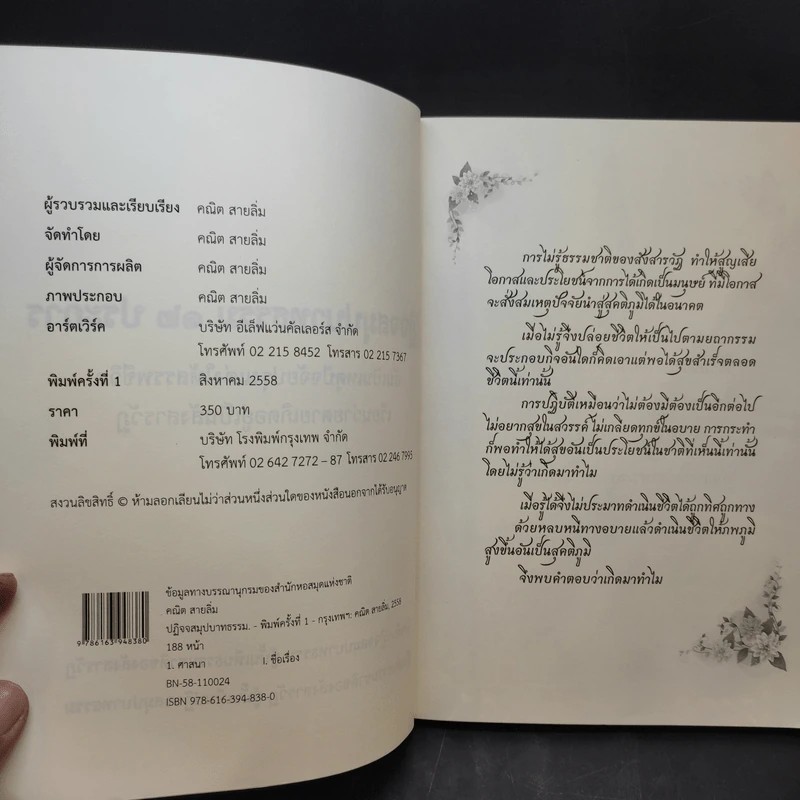 ผู้รวบรวมและเรียบเรียง คณิต สายลิ่ม
จัดทำโดย คณิต สายลิ่ม
ผู้จัดการการผลิต คณิต สายลิ่ม
ภาพประกอบ คณิต สายลิ่ม
อาร์ตเวิร์ค บริษัท อีเล็ฟแว่นคัลเลอร์ส จำกัด
โทรศัพท์ 02 215 8452 โทรสาร 02 215 7367
พิมพ์ครั้งที่ 1 สิงหาคม 2558
ราคา 350 บาท
พิมพ์ที่ บริษัท โรงพิมพ์กรุงเทพ จำกัด
โทรศัพท์ 02 642 7272 – 87 โทรสาร 02 246 7995
สงวนลิขสิทธิ์ © ห้ามลอกเลียนไม่ว่าส่วนหนึ่งส่วนใดของหนังสือนอกจากได้รับอนุญาต
ข้อมูลทางบรรณานุกรมของสำนักหอสมุดแห่งชาติ
คณิต สายลิ่ม
ปฏิจจสมุปบาทธรรม. - พิมพ์ครั้งที่ 1 - กรุงเทพฯ: คณิต สายลิ่ม, 2558
188 หน้า
1. ศาสนา I. ชื่อเรื่อง
BN-58-110024
ISBN 978-616-394-838-0
9 786163 948380
การไม่รู้ธรรมชาติของสังสารวัฏ ทำให้สูญเสีย
โอกาสและประโยชน์จากการได้เกิดเป็นมนุษย์ ที่มีโอกาส
จะสั่งสมเหตุปัจจัยนำสู่สุคติภูมิได้ในอนาคต
เมื่อไม่รู้จึงปล่อยชีวิตให้เป็นไปตามยถากรรม
จะประกอบกิจอันใดก็คิดเอาแต่พอได้สุขสำเร็จตลอด
ชีวิตนี้เท่านั้น
การปฏิบัติเหมือนว่าไม่ต้องมีต้องเป็นอีกต่อไป
ไม่อยากสุขในสวรรค์ ไม่เกลียดทุกข์ในอบาย การกระทำ
ก็พอทำให้ได้สุขอันเป็นประโยชน์ในชาติที่เห็นนี้เท่านั้น
โดยไม่รู้ว่าเกิดมาทำไม
เมื่อรู้ได้จึงไม่ประมาทดำเนินชีวิตได้ถูกทิศถูกทาง
ด้วยหลบหนีทางอบายแล้วดำเนินชีวิตให้ภพภูมิ
สูงขึ้นอันเป็นสุคติภูมิ
จึงพบคำตอบว่าเกิดมาทำไม